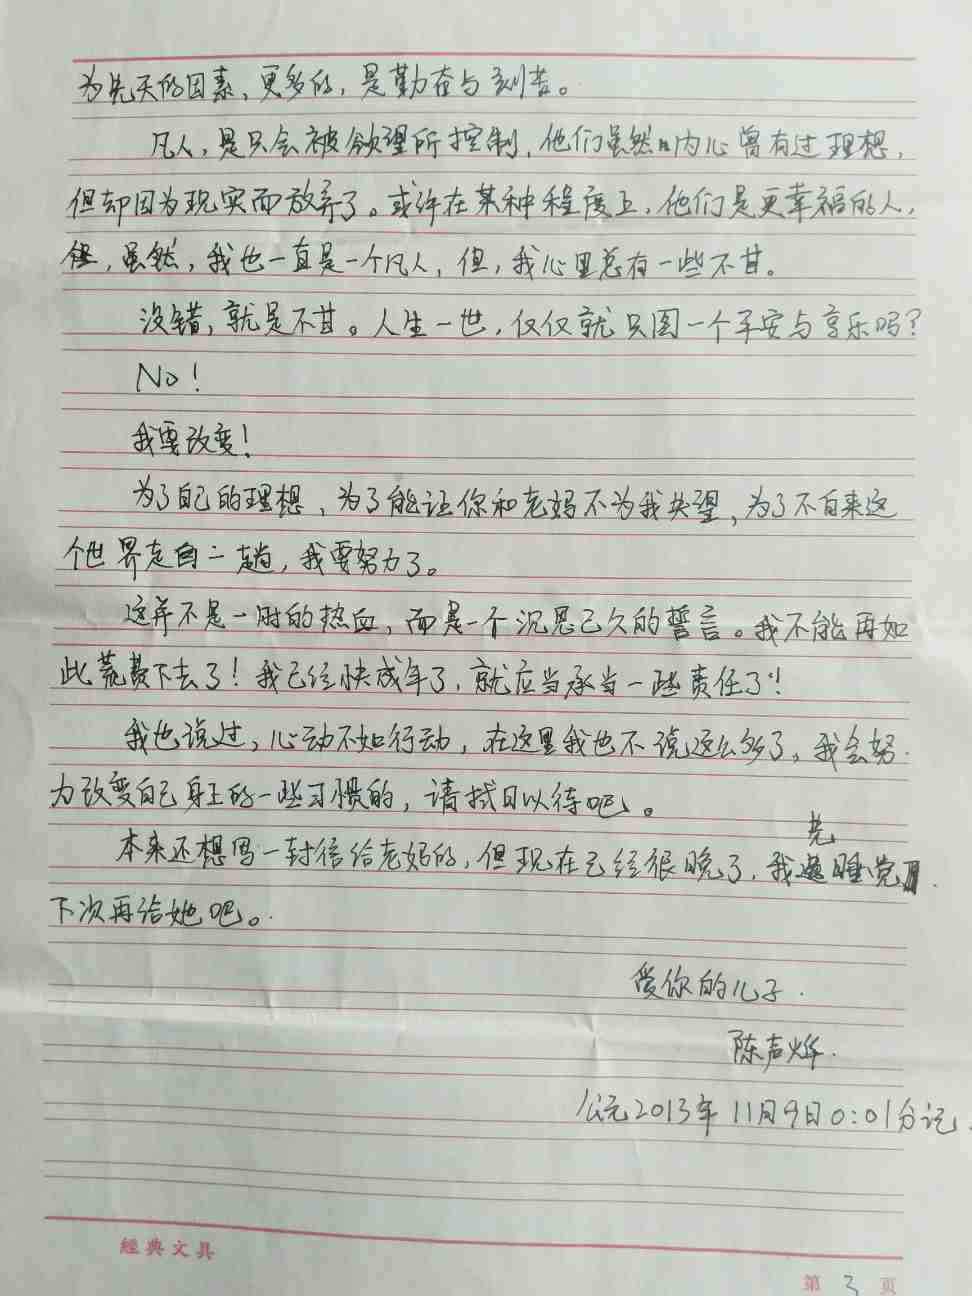 为先天的因素，更多的，是勤奋与刻苦。
凡人，是只会被欲望所控制，他们虽然内心曾有过理想，
但却因为现实而放弃了。或许在某种程度上，他们是更幸福的人，
但，虽然，我也一直是一个凡人，但，我心里总有一些不甘。
没错，就是不甘。人生一世，仅仅就只图一个平安与享乐吗？
No！
我要改变！
为了自己的理想，为了能让你和老妈不为我失望，为了不白来这
个世界走白一趟，我要努力了。
这并不是一时的热血，而是一个沉思已久的誓言。我不能再如
此荒费下去了！我已经快成年了，就应当承当一些责任了！
我也说过，心动不如行动，在这里我也不说这么多了，我会努
力改变自己身上的一些习惯的，请拭目以待吧。
本来还想写一封信给老妈的，但现在已经很晚了，我先睡觉，
下次再给她吧。
爱你的儿子.
陈声烨.
公元2013年11月9日0:01分记.
經典文具
第 3 页